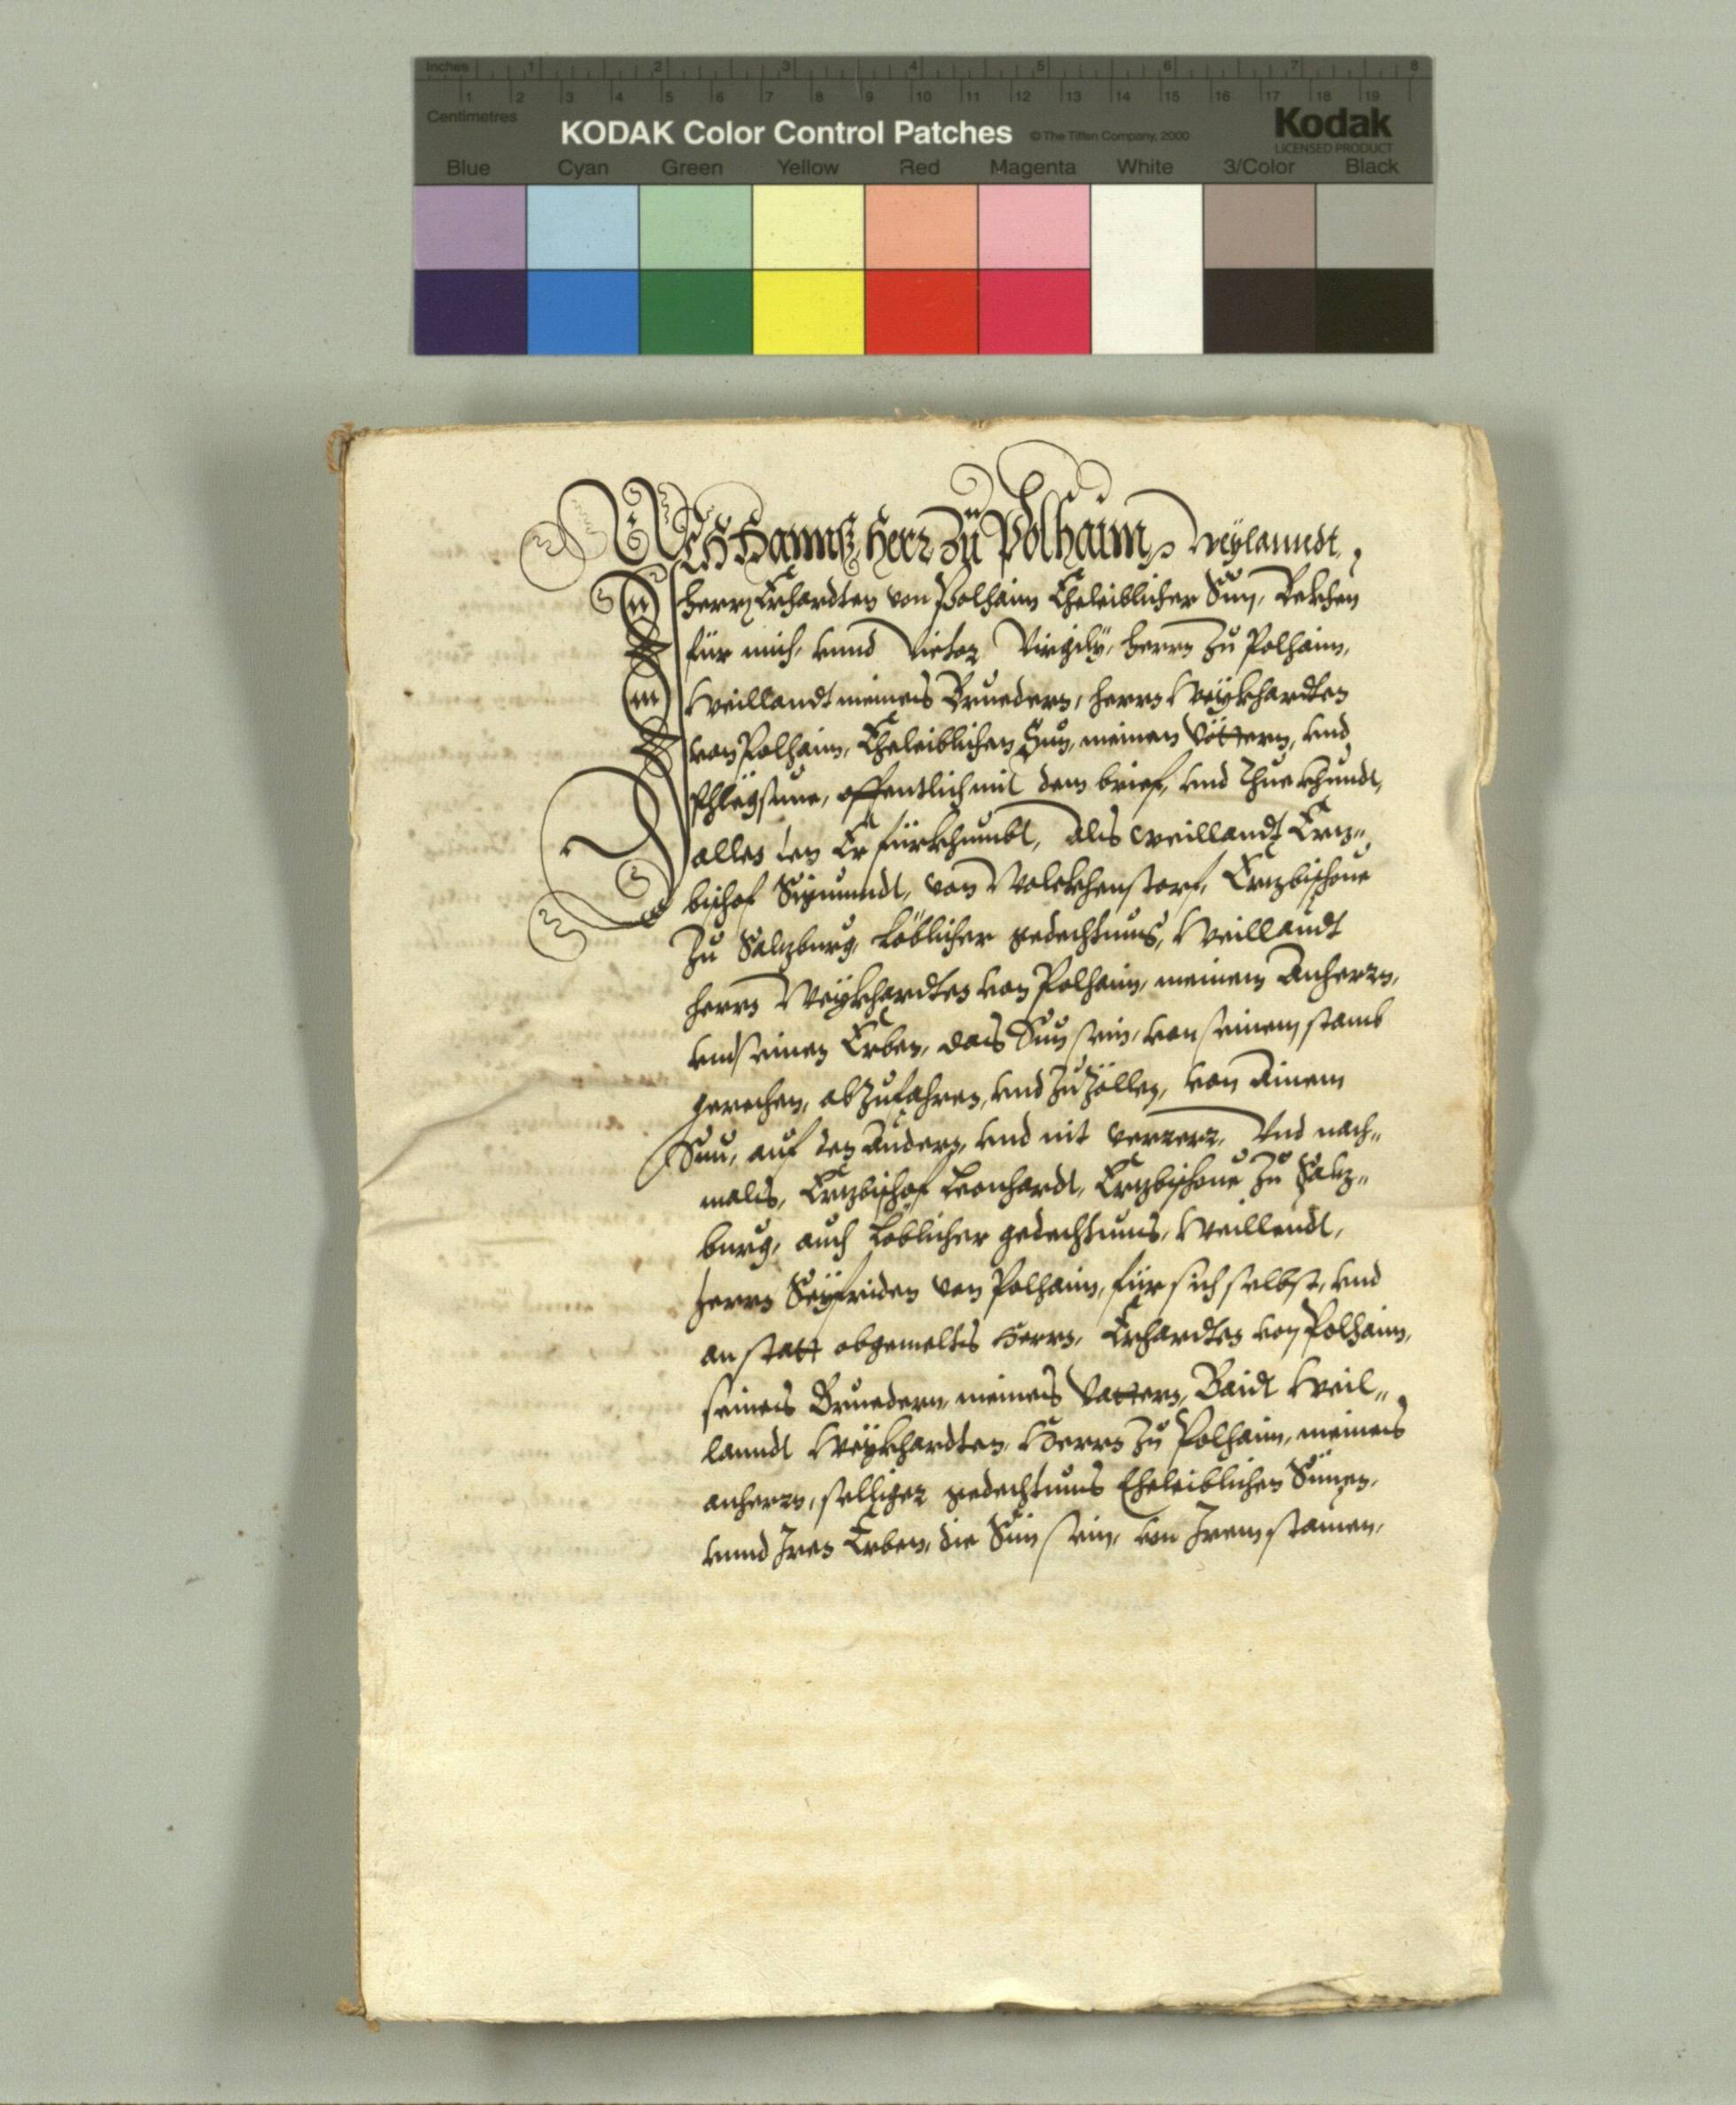 Inches 1 2 3 4 5 6 7 8
1 2 3 4 5 6 7 8 9 10 11 12 13 14 15 16 17 18 19
Centimetres
KODAK Color Control Patches © The Tiffen Company, 2000 Kodak
LICENSED PRODUCT
Blue Cyan Green Yellow Red Magenta White 3/Color Black
ICH Hannß Herr zu Polhaim, Weylanndt,
herrn Erhardten von Polhaim Eheleiblicher Sun, Bekhen
für mich, vnnd Victor Virgily, herrn zu Polhaim,
Weillandt meines Brueders, herrn Weykhardten
von Polhaim, Eheleiblichen Sun, meinen Vöttern, vnd
Phlegsune, offentlich mit dem brief, vnd thue khundt,
allen den Er fürkhumbt, Als weillandt Ertz„
bischof Sigmundt, von Volckhenstorf, Ertzbischoue
zu Saltzburg, Löblicher gedechtnus, Weillandt
herrn Weykhardten von Polhaim, meinem Anherrn,
vnd seinen Erben, das Sun sein, von seinem stamb
gerechen, abzufahren, vnd zu zöllen, von Ainem
Sun, auf den Andern, vnd nit verrer, Vnd nach„
mals, Ertzbischof Leonhardt, Ertzbischoue zu Saltz„
burg, auch Löblicher gedechtnus, Weillendt,
herrn Seyfriden von Polhaim, für sich selbst, vnd
an statt obgemelts Herrn, Erhardten von Polhaim,
seines Bruedern, meines Vattern, Baidt Weil„
lanndt Weykhardten, Herrn zu Polhaim, meines
anherrn, selliger gedechtnus Eheleiblichen Sünen,
vnnd Iren Erben, die Sün sein, von Irem stamen,